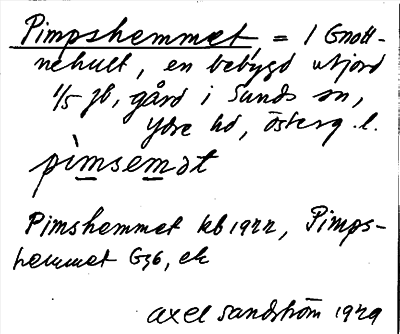 Pimpshemmet, = 1 Gnott-
nehult, en bebygd utjord
1/5 jb, gård i Sunds sn,
Ydre hd, Österg. l.
pimsemət
Pimshemmet kb 1922, Pimps-
hemmet G36, ek
Axel Sandström 1929